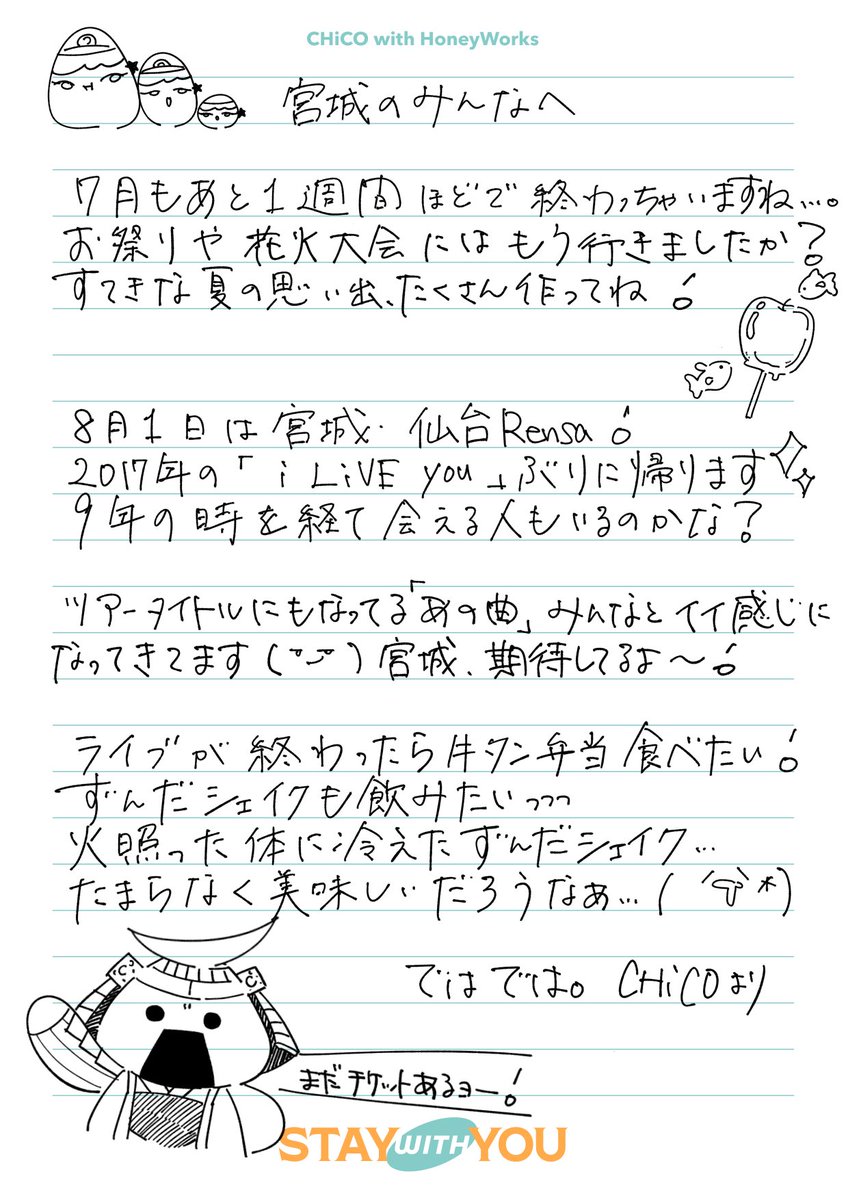 CHiCO with HoneyWorks
宮城のみんなへ
7月もあと1週間ほどで終わっちゃいますね…。
お祭りや花火大会にはもう行きましたか?
すてきな夏の思い出、たくさん作ってね!
8月1日は宮城・仙台Rensa!
2017年の「i LiVE you」ぶりに帰ります
9年の時を経て会える人もいるのかな?
ツアータイトルにもなってる「あの曲」みんなとイイ感じに
なってきてます(¨⌣¨)宮城、期待してるよ〜!
ライブが終わったら牛タン弁当食べたい!
ずんだシェイクも飲みたいっっっ
火照った体に冷えたずんだシェイク…
たまらなく美味しいだろうなぁ…( ´ਊ`*)
ではでは。 CHiCOより
まだチケットあるヨー!
STAY WITH YOU